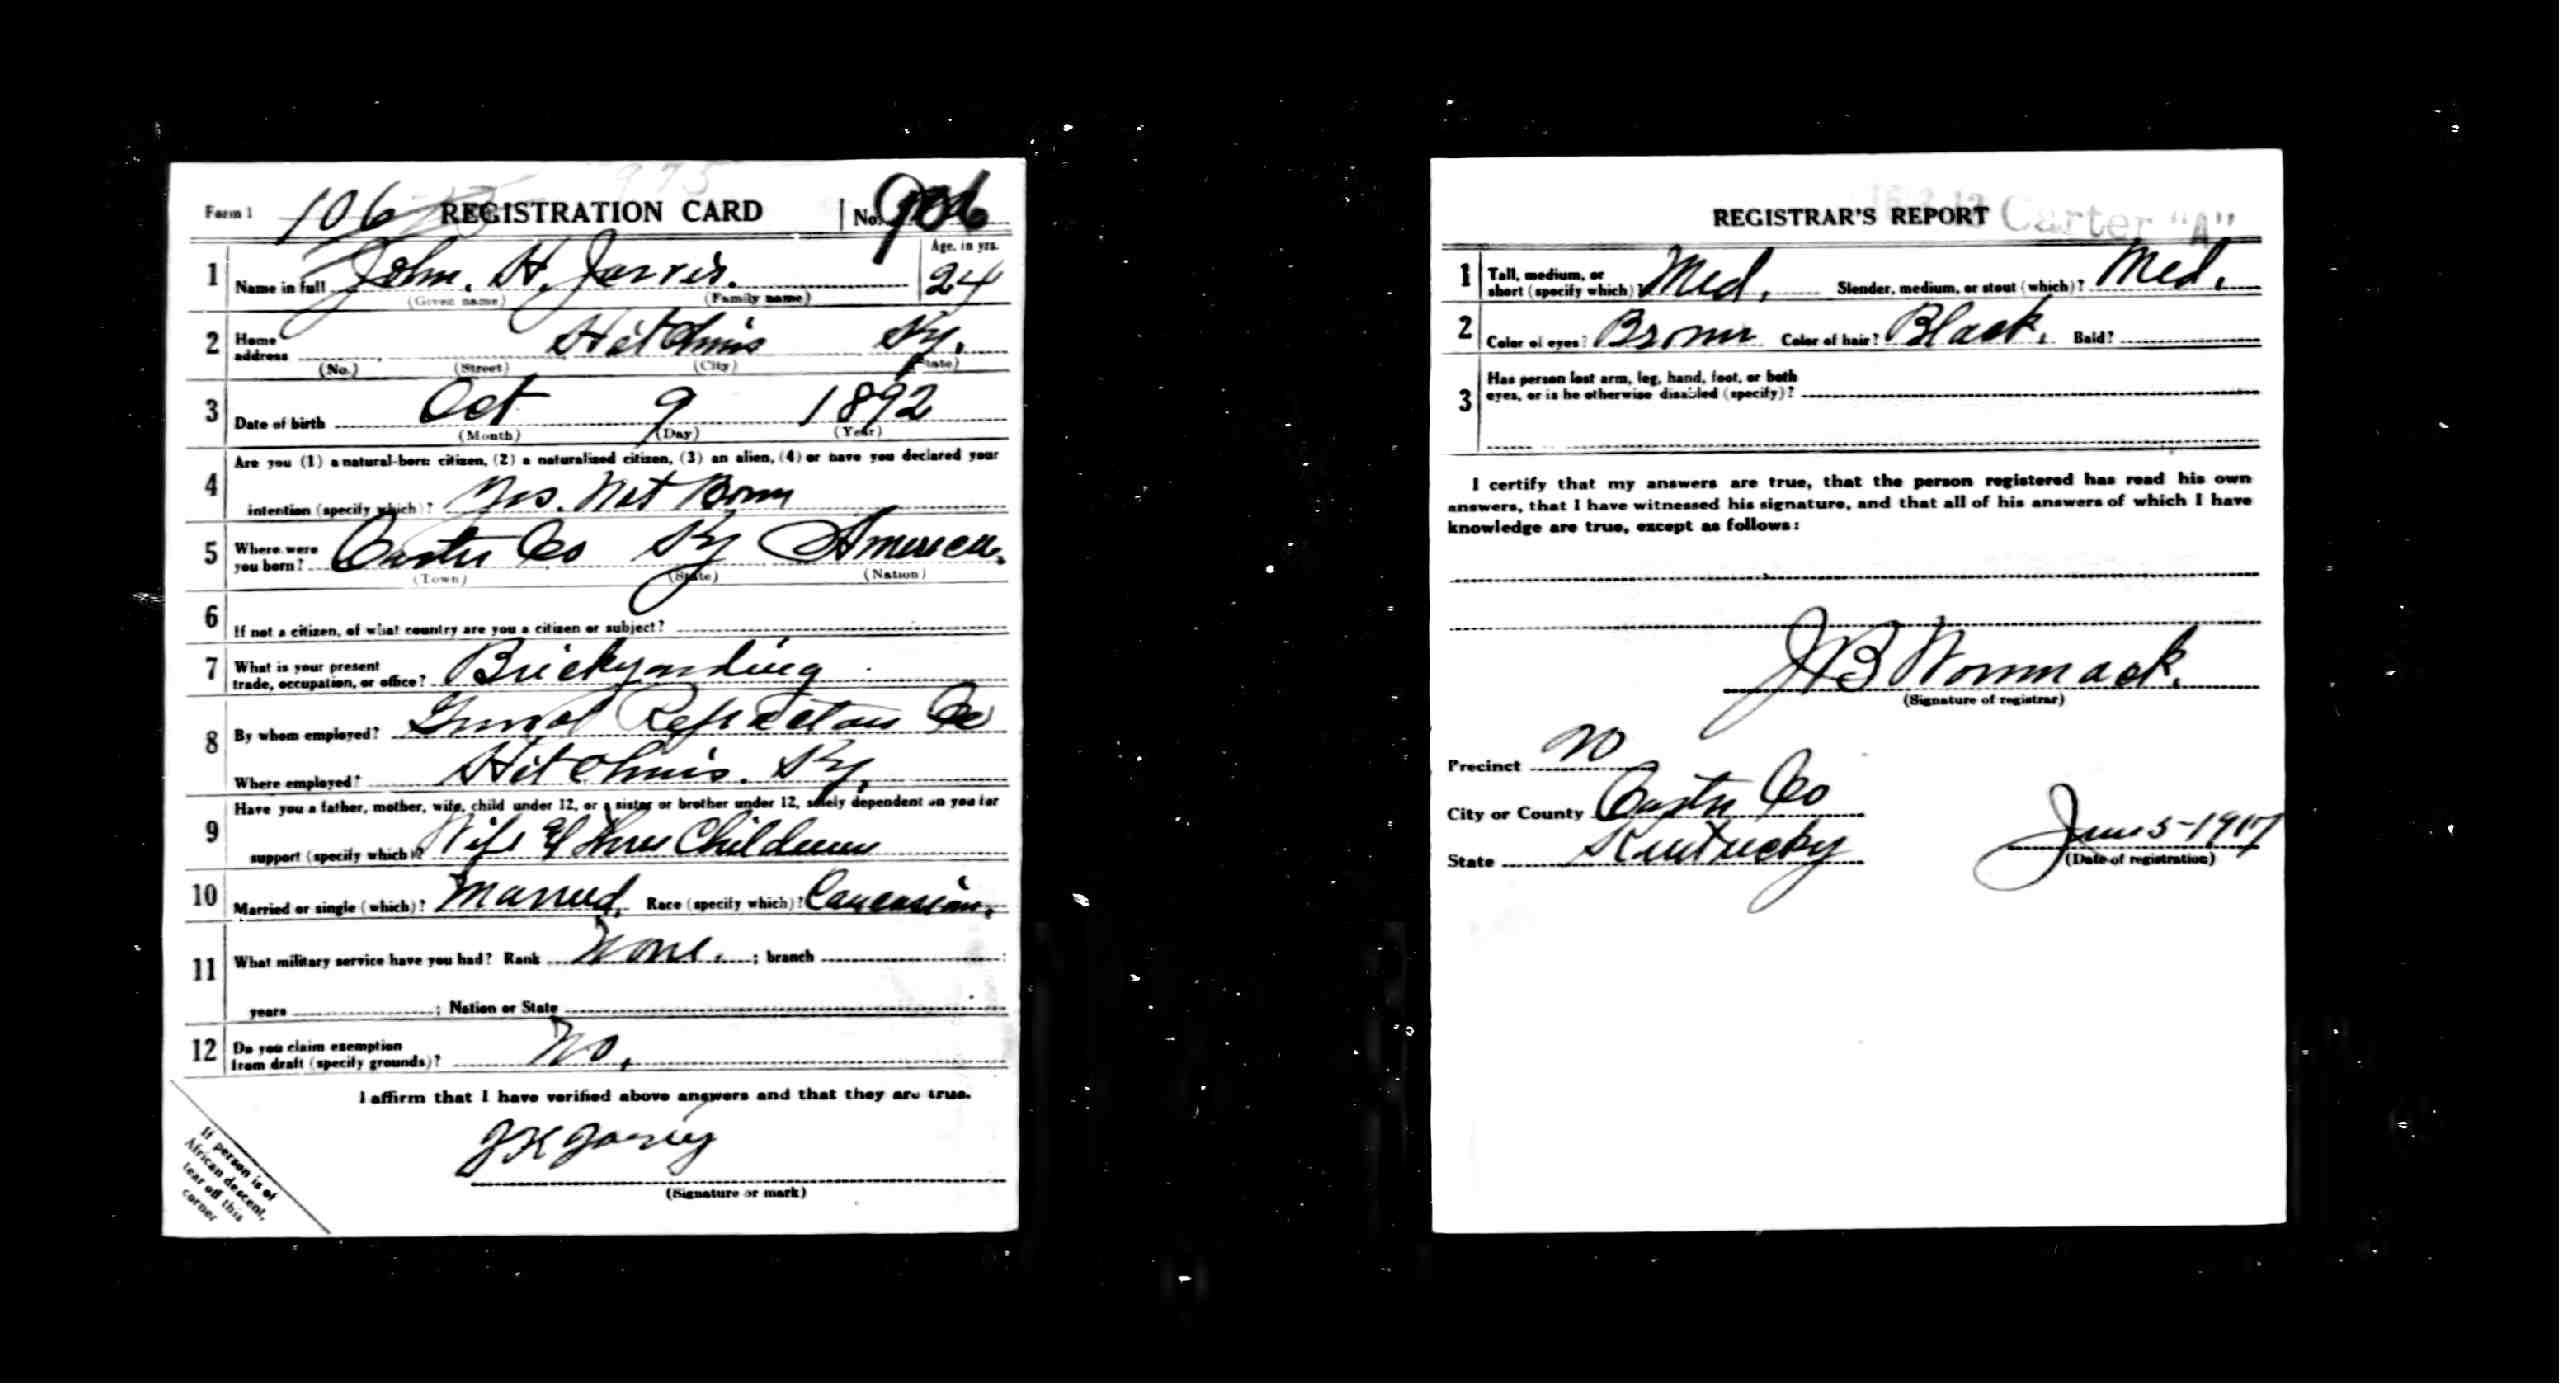 975
Form 1 106 REGISTRATION CARD No. 906
1 Name in full John. H. Jarvis. Age, in yrs. 24
(Given name) (Family name)
2 Home address Hitchins Ky.
(No.) (Street) (City) (State)
3 Date of birth Oct 9 1892
(Month) (Day) (Year)
4 Are you (1) a natural-born citizen, (2) a naturalized citizen, (3) an alien, (4) or have you declared your
intention (specify which)? Yes. Nat Born
5 Where were you born? Carter Co Ky America.
(Town) (State) (Nation)
6 If not a citizen, of what country are you a citizen or subject?
7 What is your present
trade, occupation, or office? Brickyarding
8 By whom employed? Refractory Co
Where employed? Hitchins. Ky,
9 Have you a father, mother, wife, child under 12, or a sister or brother under 12, solely dependent on you for
support (specify which)? Wife & three Children
10 Married or single (which)? Married, Race (specify which)? Caucasian.
11 What military service have you had? Rank None. ; branch ;
years ; Nation or State
12 Do you claim exemption
from draft (specify grounds)? No,
I affirm that I have verified above answers and that they are true.
(Signature or mark)
If person is of
African descent,
tear off this
corner
REGISTRAR'S REPORT Carter "A"
1 Tall, medium, or
short (specify which)? Med, Slender, medium, or stout (which)? Med,
2 Color of eyes? Brown Color of hair? Black, Bald?
3 Has person lost arm, leg, hand, foot, or both
eyes, or is he otherwise disabled (specify)?
I certify that my answers are true, that the person registered has read his own
answers, that I have witnessed his signature, and that all of his answers of which I have
knowledge are true, except as follows:
J B Wommack.
(Signature of registrar)
Precinct 20
City or County Carter Co
State Kentucky June 5-1917
(Date of registration)